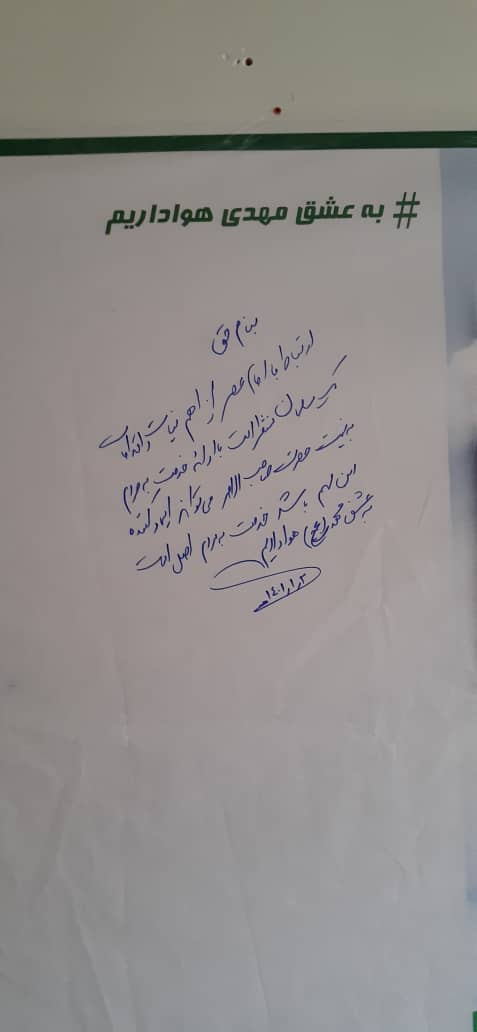 # به عشق مهدی هواداریم
بنام حق
ارتباط با امام عصر از اهم نیات و اقدامات
یک مسلمان منتظر است با ارائه خدمت به مردم
به نیت حضرت صاحب الامر می‌تواند ایجاد کننده
این مهم باشد خدمت به مردم اصل است
به عشق مهدی (عج) هواداریم